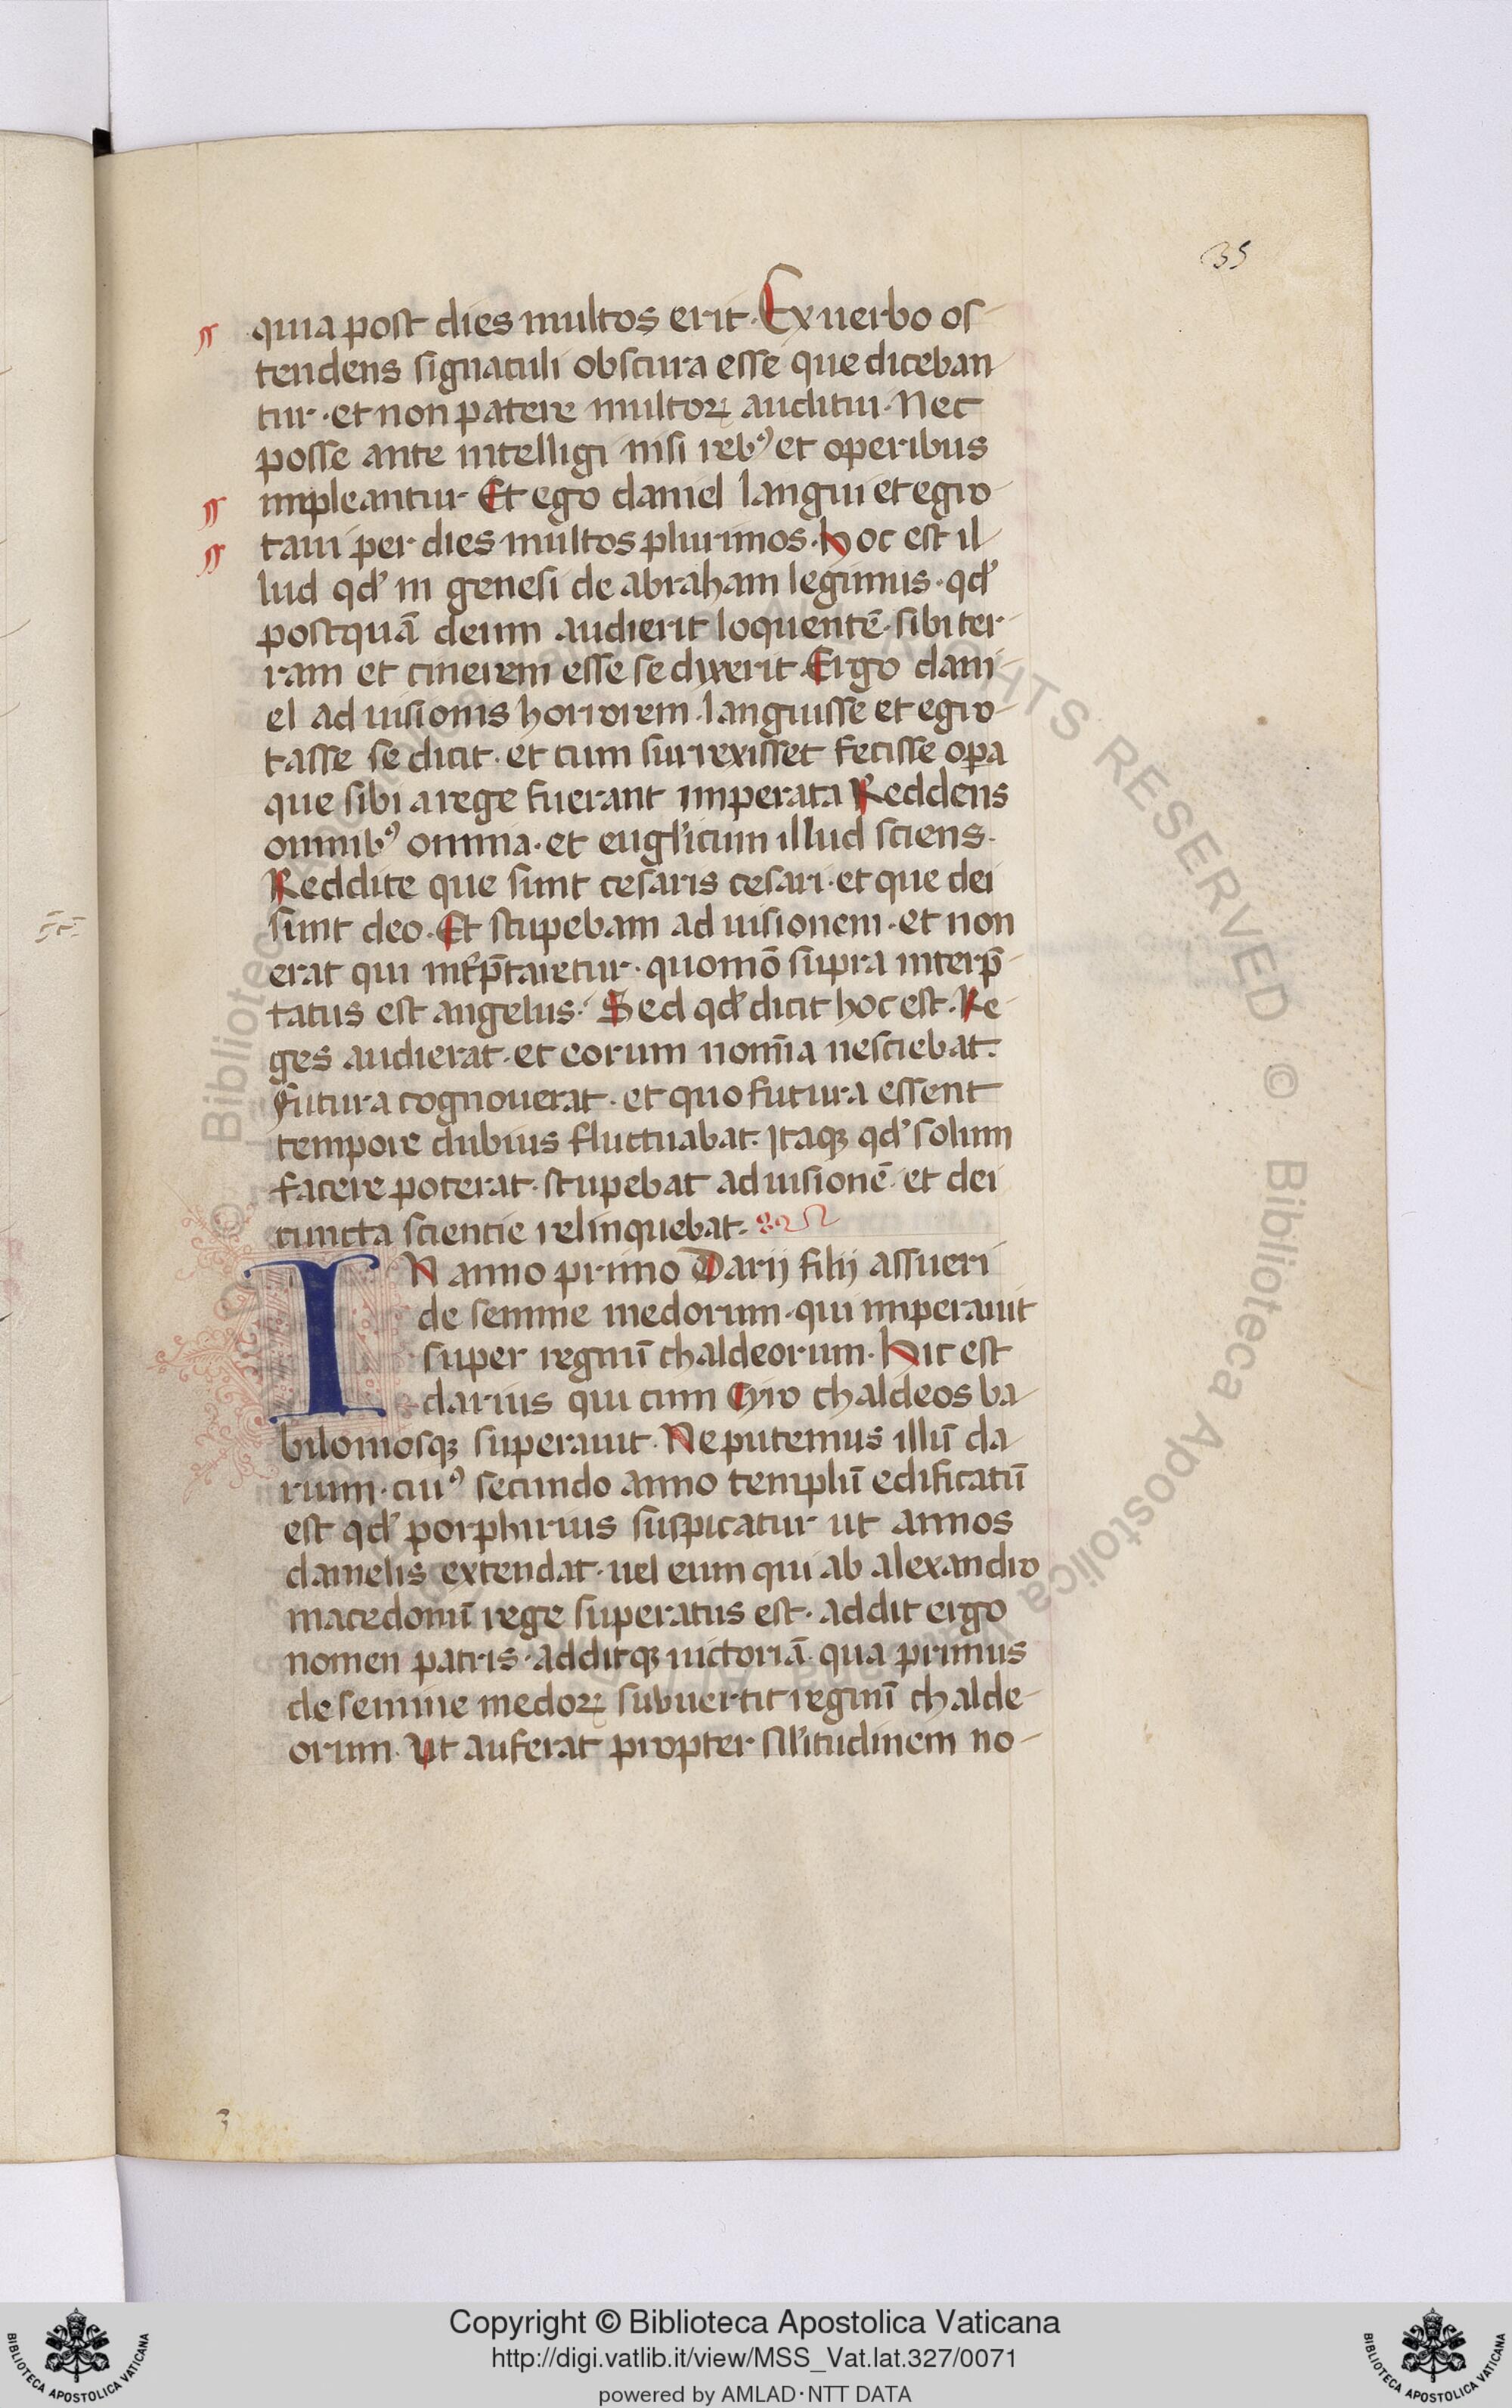 35
quia post dies multos erit. Ex uerbo os-
tendens signaculi obscura esse que diceban
tur. et non patere multoꝝ auditui. Nec
posse ante intelligi nisi rebꝰ et operibus
impleantur. Et ego daniel langui et egro-
taui per dies multos plurimos. Hoc est il-
lud qd' in genesi de abraham legimus. qd'
postquã deum audierit loquentẽ. sibi ter-
ram et cinerem esse se dixerit. Ergo dani-
el ad uisionis horrorem. languisse et egro-
tasse se dicit. et cum surrexisset fecisse oꝑa
que sibi a rege fuerant imperata Reddens
omnibꝰ omnia. et eugl'icum illud sciens.
Reddite que sunt cesaris cesari. et que dei
sunt deo. Et stupebam ad uisionem. et non
erat qui int'p̃taretur. quomõ supra interp̃-
tatus est angelus. Sed qd' dicit hoc est. Re-
ges audierat. et eorum nom̃ia nesciebat.
futura cognouerat. et quo futura essent
tempore dubius fluctuabat. Itaqꝫ qd' solum
facere poterat. stupebat ad uisionẽ. et dei
cuncta scientie relinquebat.
IN anno primo Darij filij assueri
de semine medorum. qui imperauit
super regnũ chaldeorum. Hic est
darius qui cum Cyro chaldeos ba-
biloniosqꝫ superauit. Ne putemus illũ da-
rium. cuiꝰ secundo anno templũ edificatũ
est qd' porphirius suspicatur ut annos
danielis extendat. uel eum qui ab alexandro
macedonũ rege superatus est. addit ergo
nomen patris. additqꝫ uictoriã. qua primus
de semine medoꝝ subuertit regnũ chalde-
orum. Ut auferat propter sil'itudinem no-
3
© Biblioteca Apostolica Vaticana ALL RIGHTS RESERVED © Biblioteca Apostolica
Copyright © Biblioteca Apostolica Vaticana
http://digi.vatlib.it/view/MSS_Vat.lat.327/0071
powered by AMLAD·NTT DATA
BIBLIOTECA APOSTOLICA VATICANA
BIBLIOTECA APOSTOLICA VATICANA